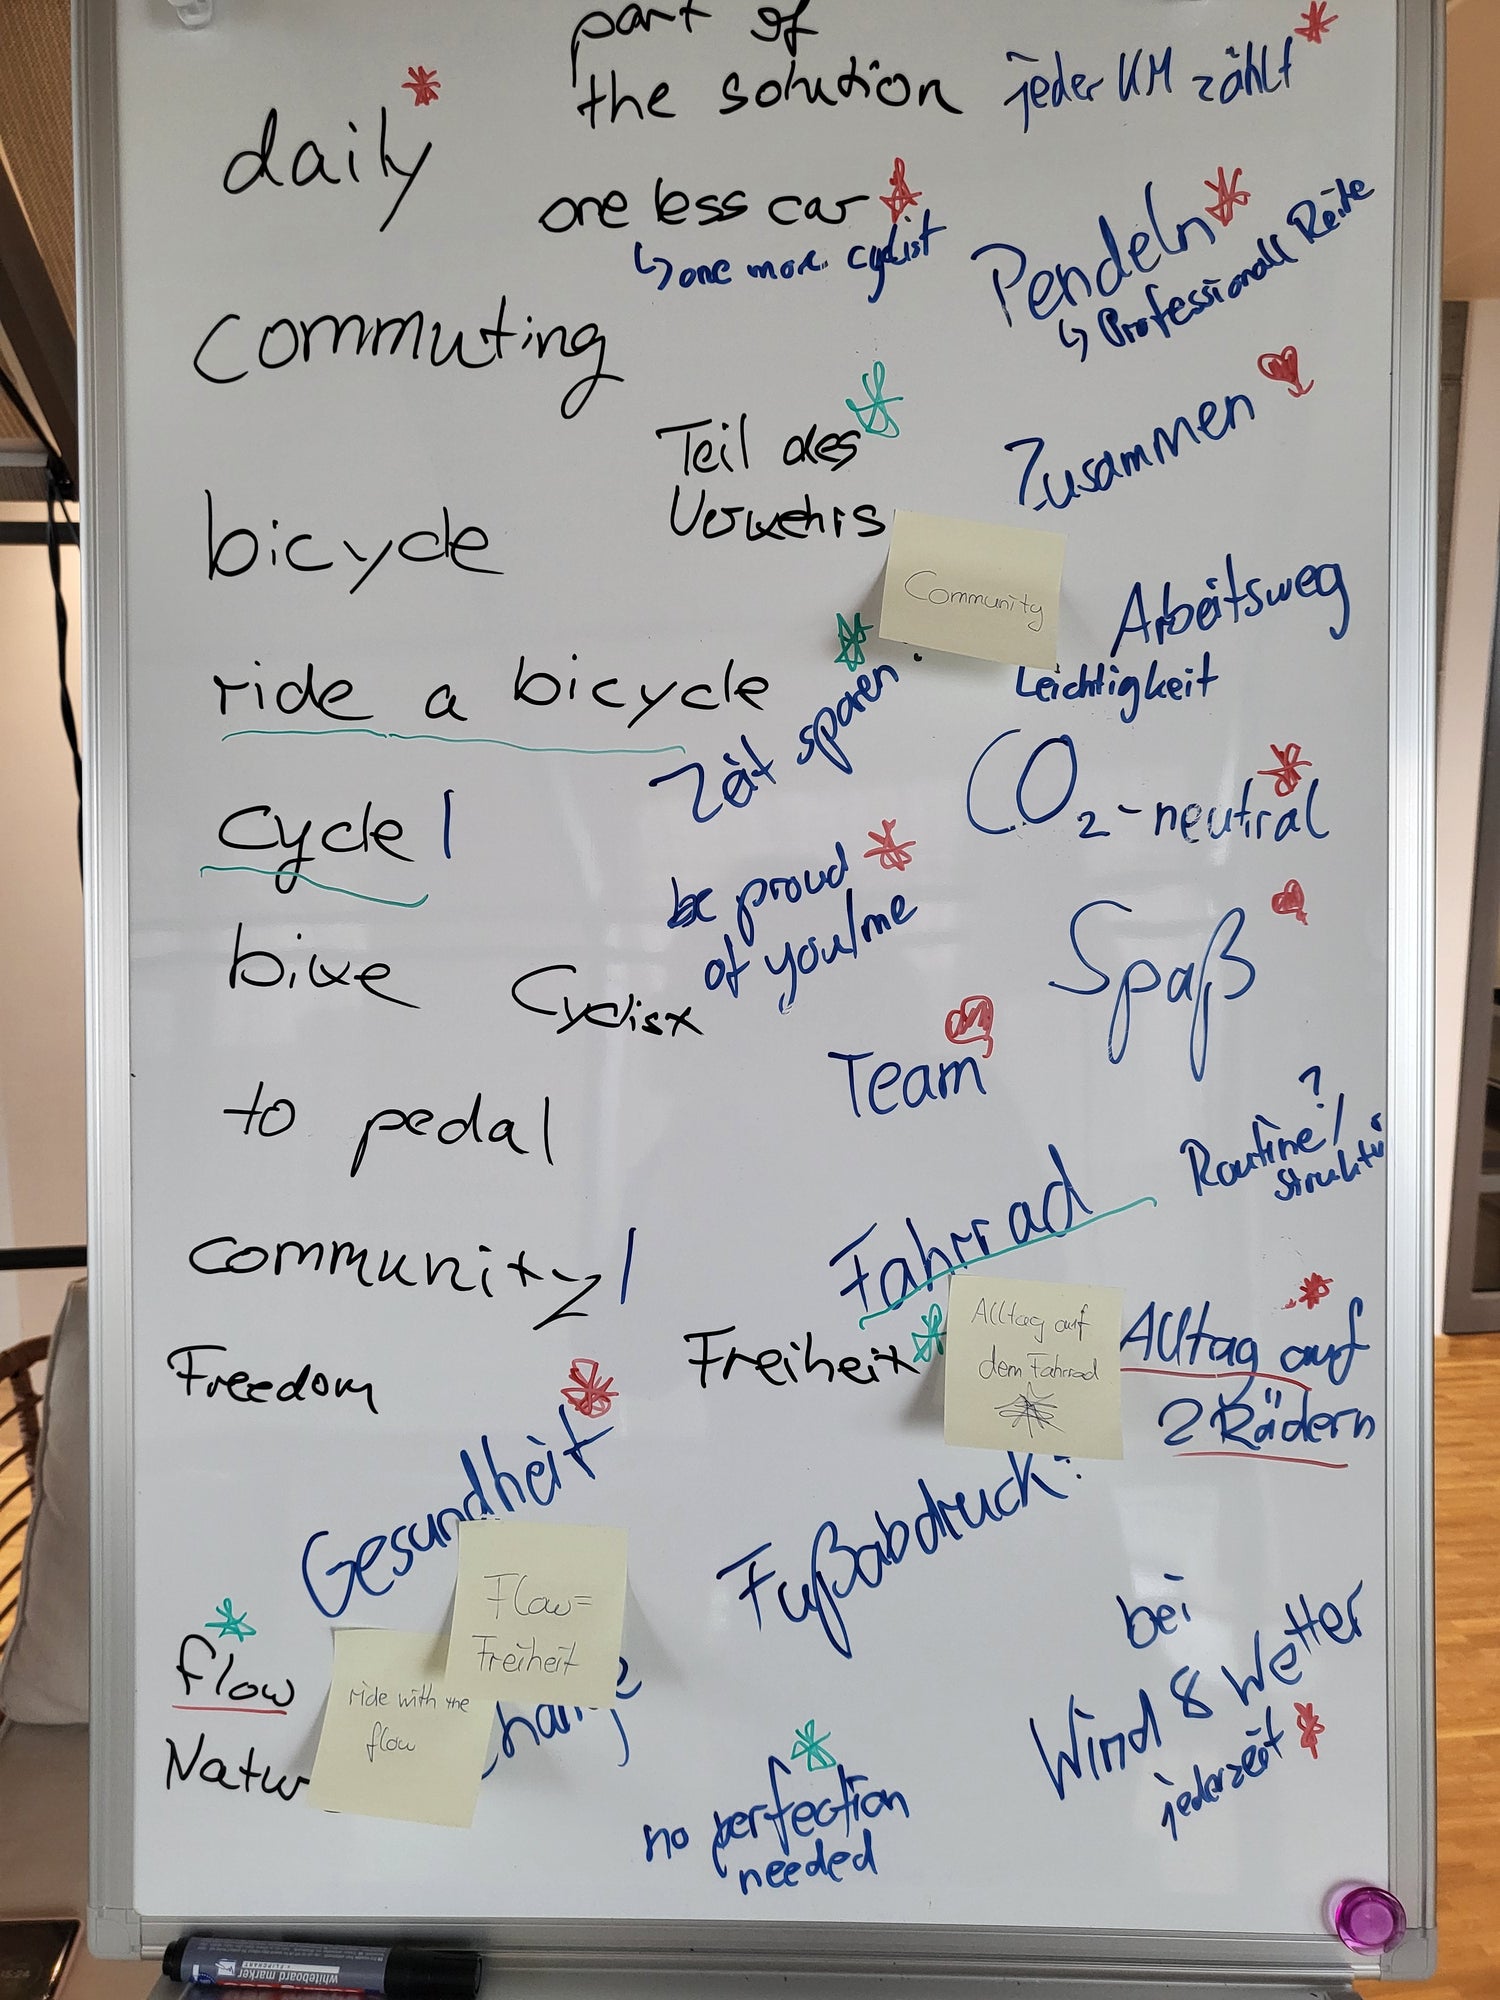 part of
the solution
jeder KM zählt
daily
one less car
↳ one more cyclist
Pendeln
↳ Professionall Reite
commuting
Zusammen
Teil des
Verkehrs
bicycle
Community
Arbeitsweg
Leichtigkeit
ride a bicycle
Zeit sparen
CO2-neutral
cycle /
be proud
of you/me
Spaß
bike
Cyclist
Team
to pedal
Routine? /
Fahrrad
community /
Alltag auf
dem Fahrrad
Alltag auf
2 Rädern
Freiheit
Freedom
Gesundheit
Fußabdruck
Flow=
Freiheit
bei
Wind & Wetter
jederzeit
flow
ride with the
flow
Natur
no perfection
needed
whiteboard marker